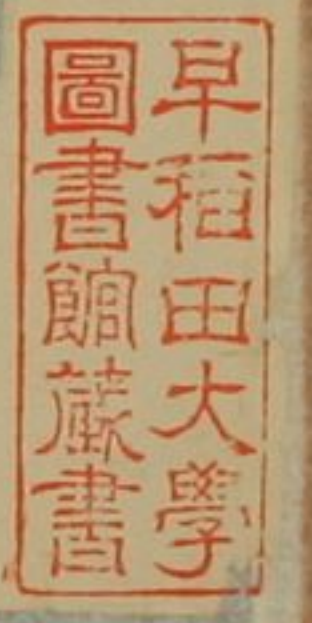 早稲田大學
圖書館蔵書